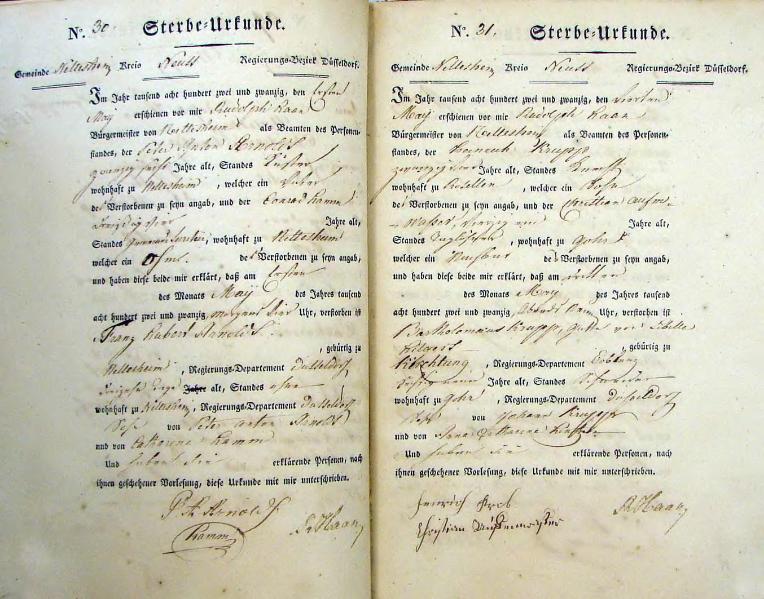 N. 30. Sterbe-Urkunde.
Gemeinde Nettesheim Kreis Neuss Regierungs-Bezirk Düsseldorf.
Im Jahr tausend acht hundert zwei und zwanzig, den ersten
May erschienen vor mir Rudolph Haan
Bürgermeister von Nettesheim als Beamten des Personen-
standes, der Peter Anton Arnolds
zwanzig fünf Jahre alt, Standes Küster
wohnhaft zu Nettesheim, welcher ein Vater
des Verstorbenen zu seyn angab, und der Conrad Hamm
dreisig vier
Jahre alt,
Standes , wohnhaft zu Nettesheim
welcher ein Ohm des Verstorbenen zu seyn angab,
und haben diese beide mir erklärt, daß am ersten
des Monats May des Jahres tausend
acht hundert zwei und zwanzig, morgens vier Uhr, verstorben ist
Franz Hubert Arnolds
, gebürtig zu
Nettesheim, Regierungs-Departement Dusseldorf
Tage Jahre alt, Standes ohne
wohnhaft zu Nettesheim, Regierungs-Departement Dusseldorf
Sohn von Peter Anton Arnolds
und von Catharina Hamm
Und haben die erklärende Personen, nach
ihnen geschehener Vorlesung, diese Urkunde mit mir unterschrieben.
P A Arnolds
Hamm
R Haan
N. 31. Sterbe-Urkunde.
Gemeinde Nettesheim Kreis Neuss Regierungs-Bezirk Düsseldorf.
Im Jahr tausend acht hundert zwei und zwanzig, den vierten
May erschienen vor mir Rudolph Haan
Bürgermeister von Nettesheim als Beamten des Personen-
standes, der Heinrich Krupp
zwanzig Jahre alt, Standes Knecht
wohnhaft zu Rosellen, welcher ein Sohn
des Verstorbenen zu seyn angab, und der Christian
Jahre alt,
Standes Taglöhner, wohnhaft zu Gohr
welcher ein Nachbar des Verstorbenen zu seyn angab,
und haben diese beide mir erklärt, daß am dritten
des Monats May des Jahres tausend
acht hundert zwei und zwanzig, Abends Uhr, verstorben ist
Bartholomäus Krupp, Gatte von Sibilla
, gebürtig zu
, Regierungs-Departement Coblenz
Jahre alt, Standes Schneider
wohnhaft zu Gohr, Regierungs-Departement Dusseldorf
Sohn von Johann Krupp
und von Anna Catharina
Und haben die erklärende Personen, nach
ihnen geschehener Vorlesung, diese Urkunde mit mir unterschrieben.
R Haan
Christian